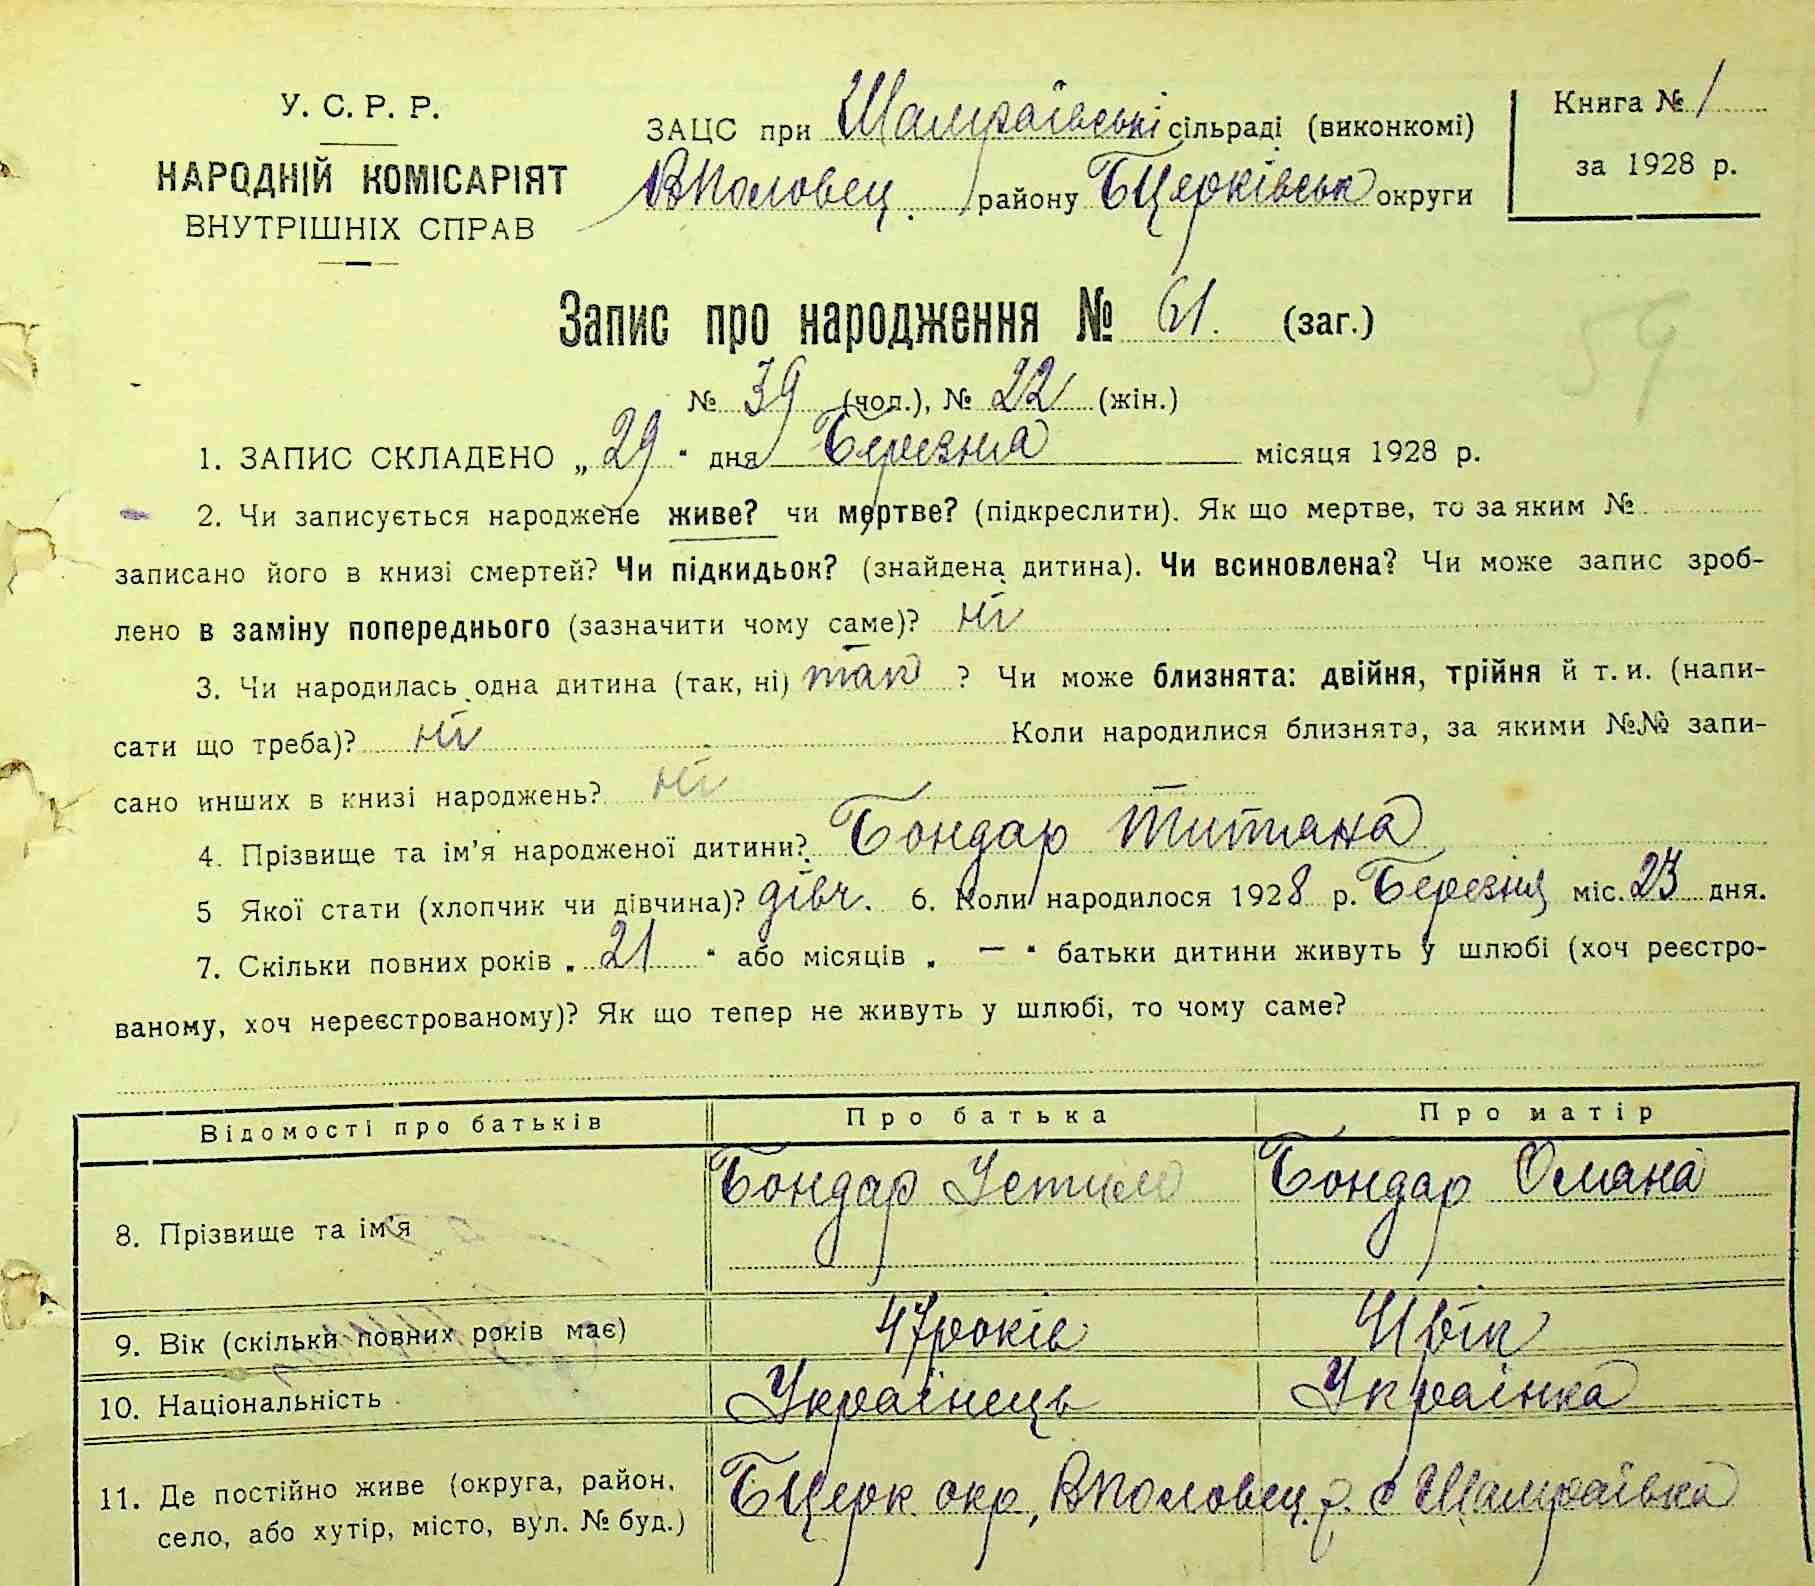 У. С. Р. Р.
НАРОДНІЙ КОМІСАРІЯТ
ВНУТРІШНІХ СПРАВ
ЗАЦС при Шамраївські сільраді (виконкомі)
ВПоловец. району БЦерківськ округи
Книга № 1
за 1928 р.
Запис про народження № 61. (заг.)
59
№ 39 (чол.), № 22 (жін.)
1. ЗАПИС СКЛАДЕНО „ 29 " дня Березня місяця 1928 р.
2. Чи записується народжене живе? чи мертве? (підкреслити). Як що мертве, то за яким №
записано його в книзі смертей? Чи підкидьок? (знайдена дитина). Чи всиновлена? Чи може запис зроб-
лено в заміну попереднього (зазначити чому саме)? ні
3. Чи народилась одна дитина (так, ні) так ? Чи може близнята: двійня, трійня й т. и. (напи-
сати що треба)? ні Коли народилися близнята, за якими №№ запи-
сано инших в книзі народжень? ні
4. Прізвище та ім'я народженої дитини? Бондар Титяна
5 Якої стати (хлопчик чи дівчина)? дівч. 6. Коли народилося 1928 р. Березня міс. 23 дня.
7. Скільки повних років „ 21 " або місяців „ — " батьки дитини живуть у шлюбі (хоч реєстро-
ваному, хоч нереєстрованому)? Як що тепер не живуть у шлюбі, то чому саме?
Відомості про батьків Про батька Про матір
8. Прізвище та ім'я Бондар Устим Бондар Омяна
9. Вік (скільки повних років має) 47 років 41 вік
10. Національність Українець Українка
11. Де постійно живе (округа, район,
село, або хутір, місто, вул. № буд.) БЦерк окр, ВПоловец. р. с Шамраївка